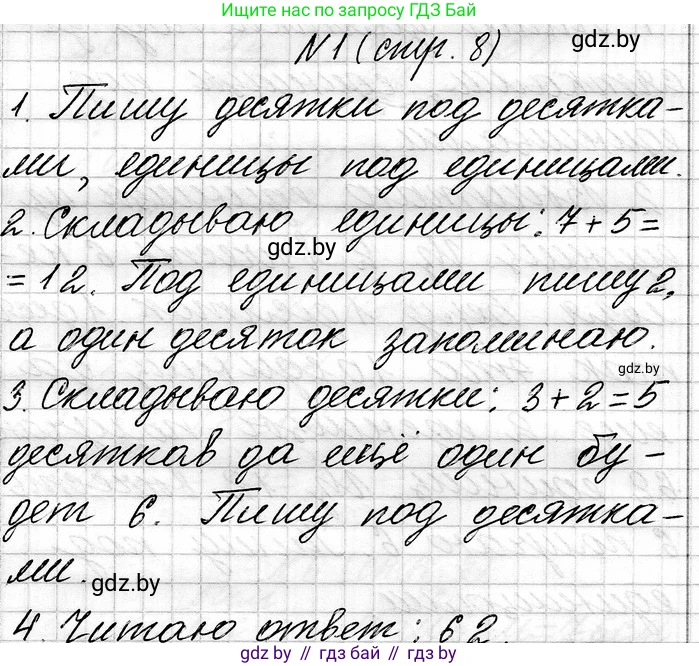 Ищите нас по запросу ГДЗ Бай
N1 (стр. 8)
gdz.by
1. Пишу десятки под десятка-
ми, единицы под единицами.
2. Складываю единицы: 7 + 5 =
gdz.by
= 12. Под единицами пишу 2,
а один десяток запоминаю.
gdz.by
3. Складываю десятки: 3 + 2 = 5
десятков да ещё один бу-
дет 6. Пишу под десятка-
ми.
gdz.by
4. Читаю ответ: 62.
gdz.by // гдз бай // gdz.by